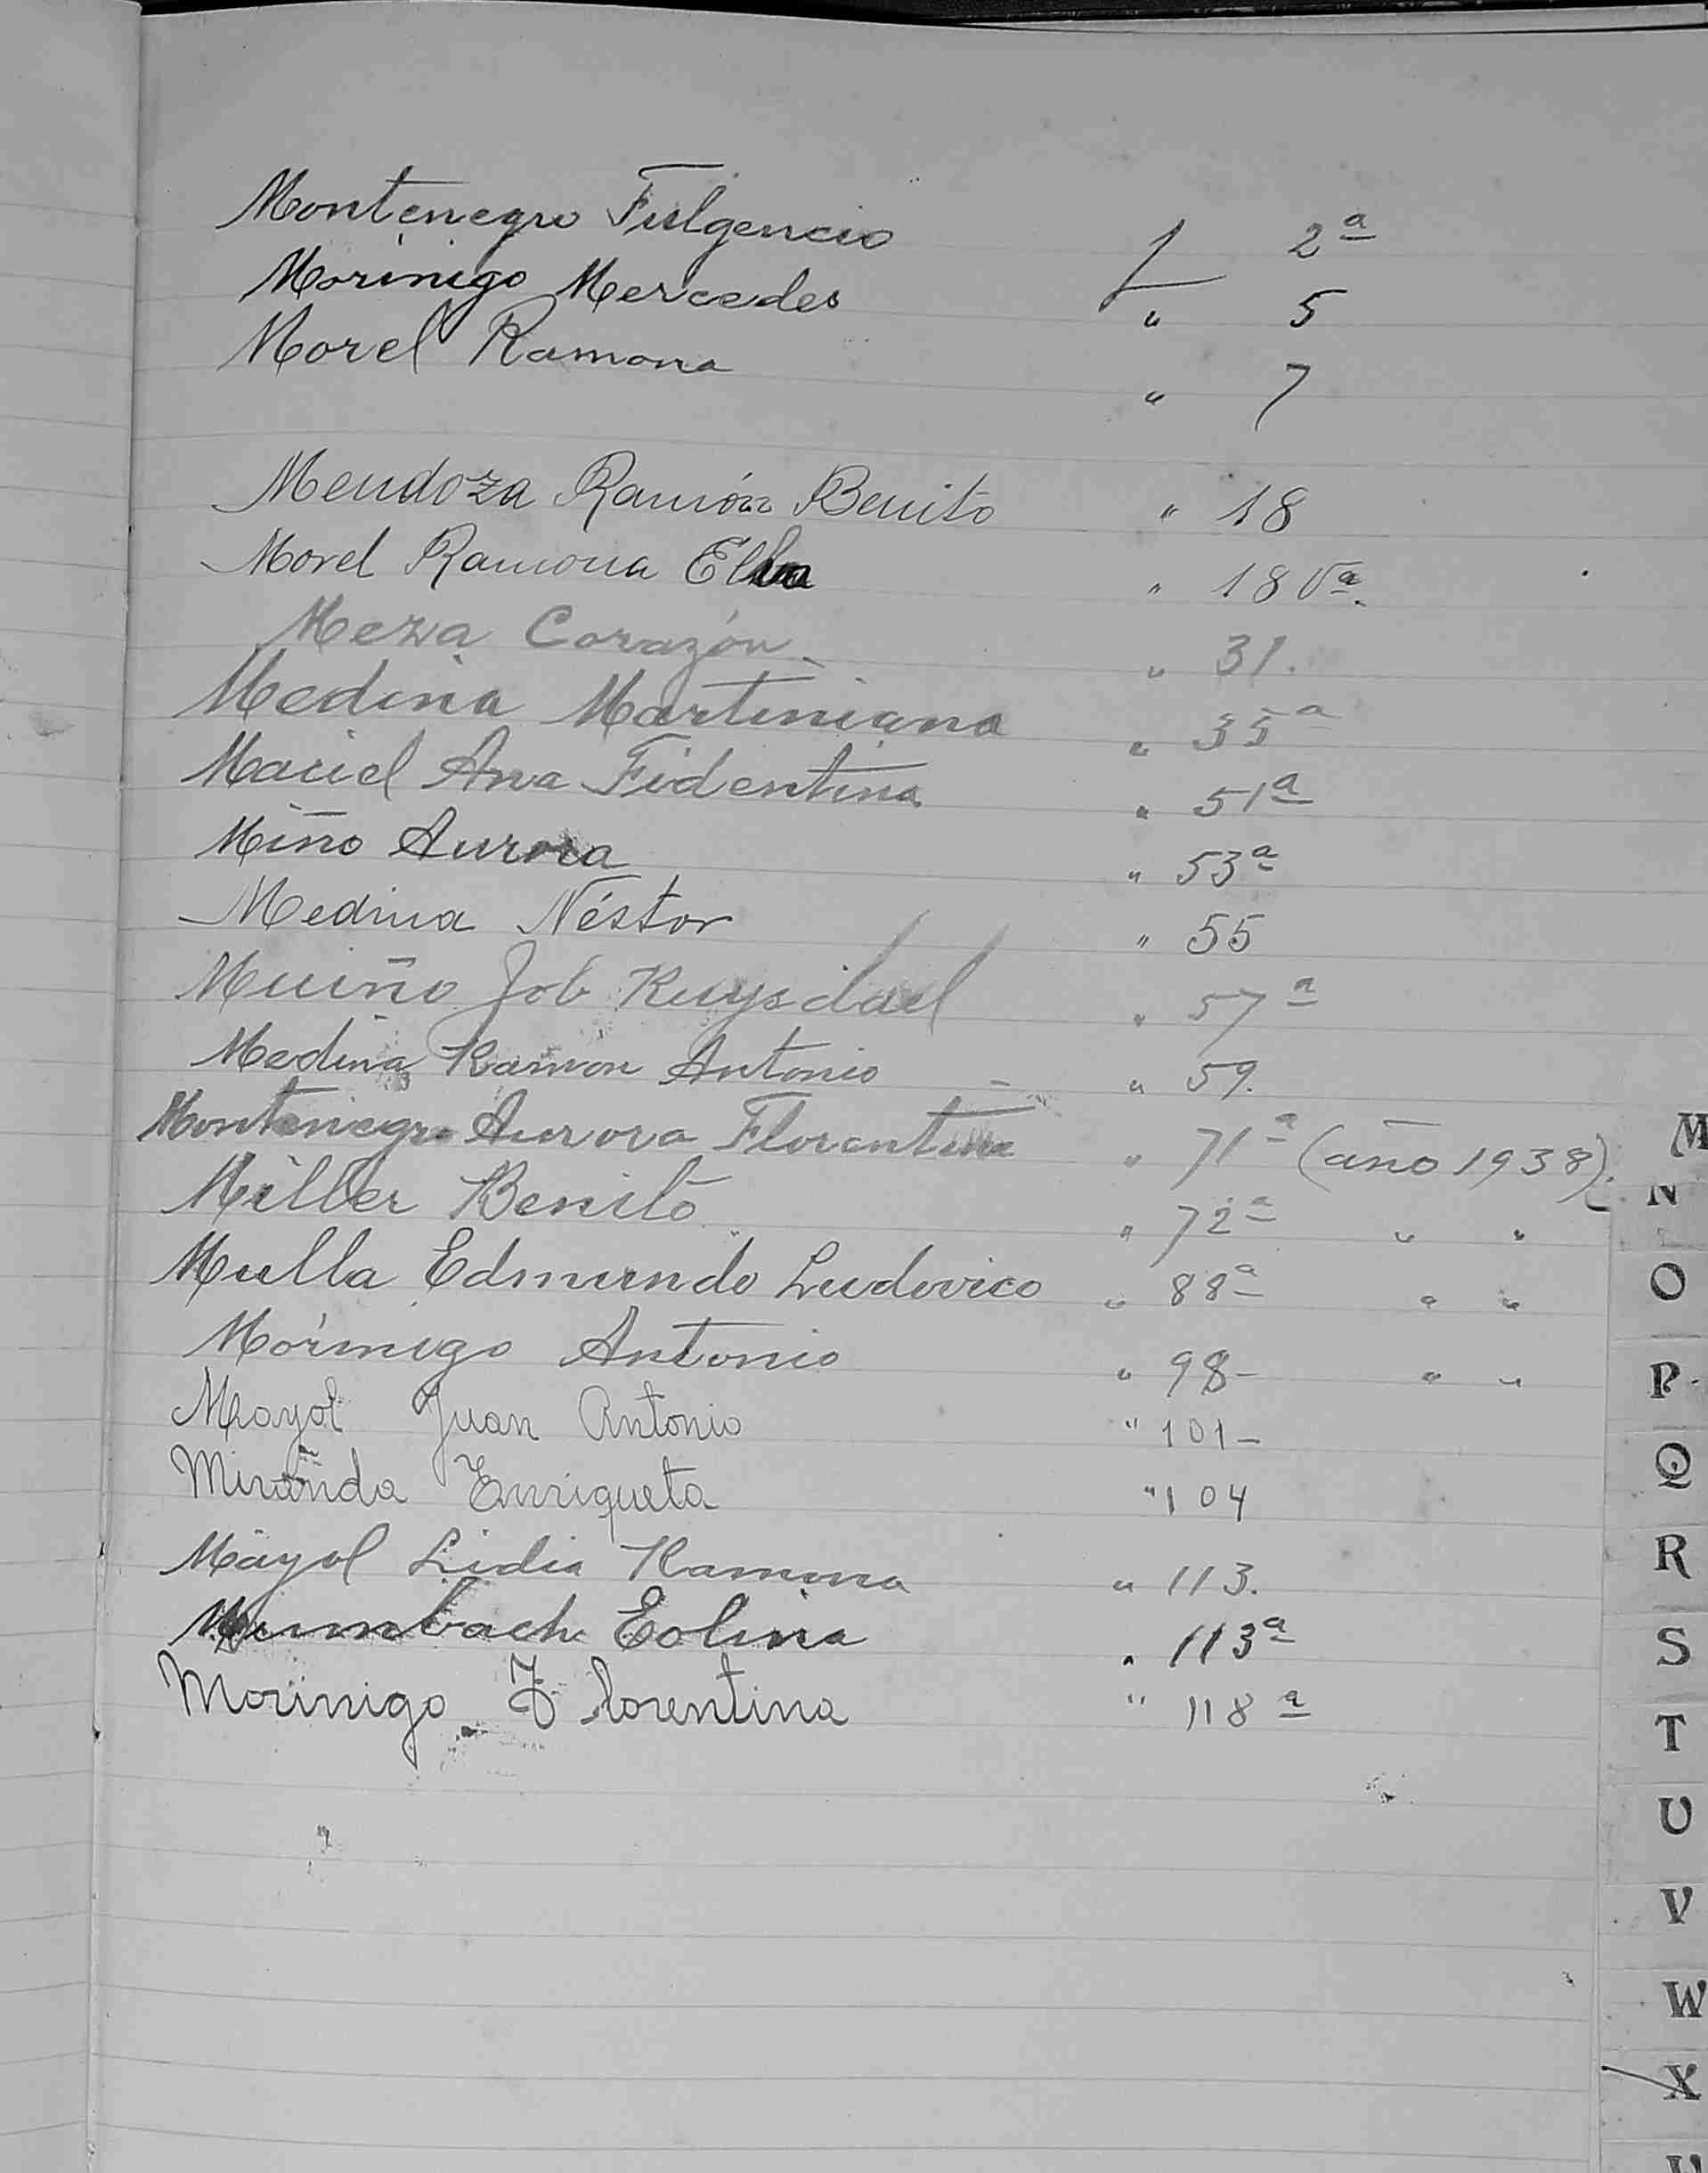 Montenegro Fulgencio f 2ª
Morinigo Mercedes " 5
Morel Ramona " 7
Mendoza Ramón Benito " 18
Morel Ramona Elba " 18 Vª.
Meza Corazón " 31.
Medina Martiniana " 35ª
Maciel Ana Fidentina " 51ª
Miño Aurora " 53ª
Medina Néstor " 55
Muiño Job Ruysdael " 57ª
Medina Ramon Antonio - " 59.
Montenegro Aurora Florentina " 71ª (año 1938).
Miller Benito " 72ª " "
Mulla Edmundo Ludovico " 88ª " "
Morinigo Antonio " 98- " "
Mayol Juan Antonio " 101-
Miranda Enriqueta " 104
Mayol Lidia Ramona " 113.
Eolina " 113ª
Morinigo Florentina " 118ª
M
N
O
P
Q
R
S
T
U
V
W
X